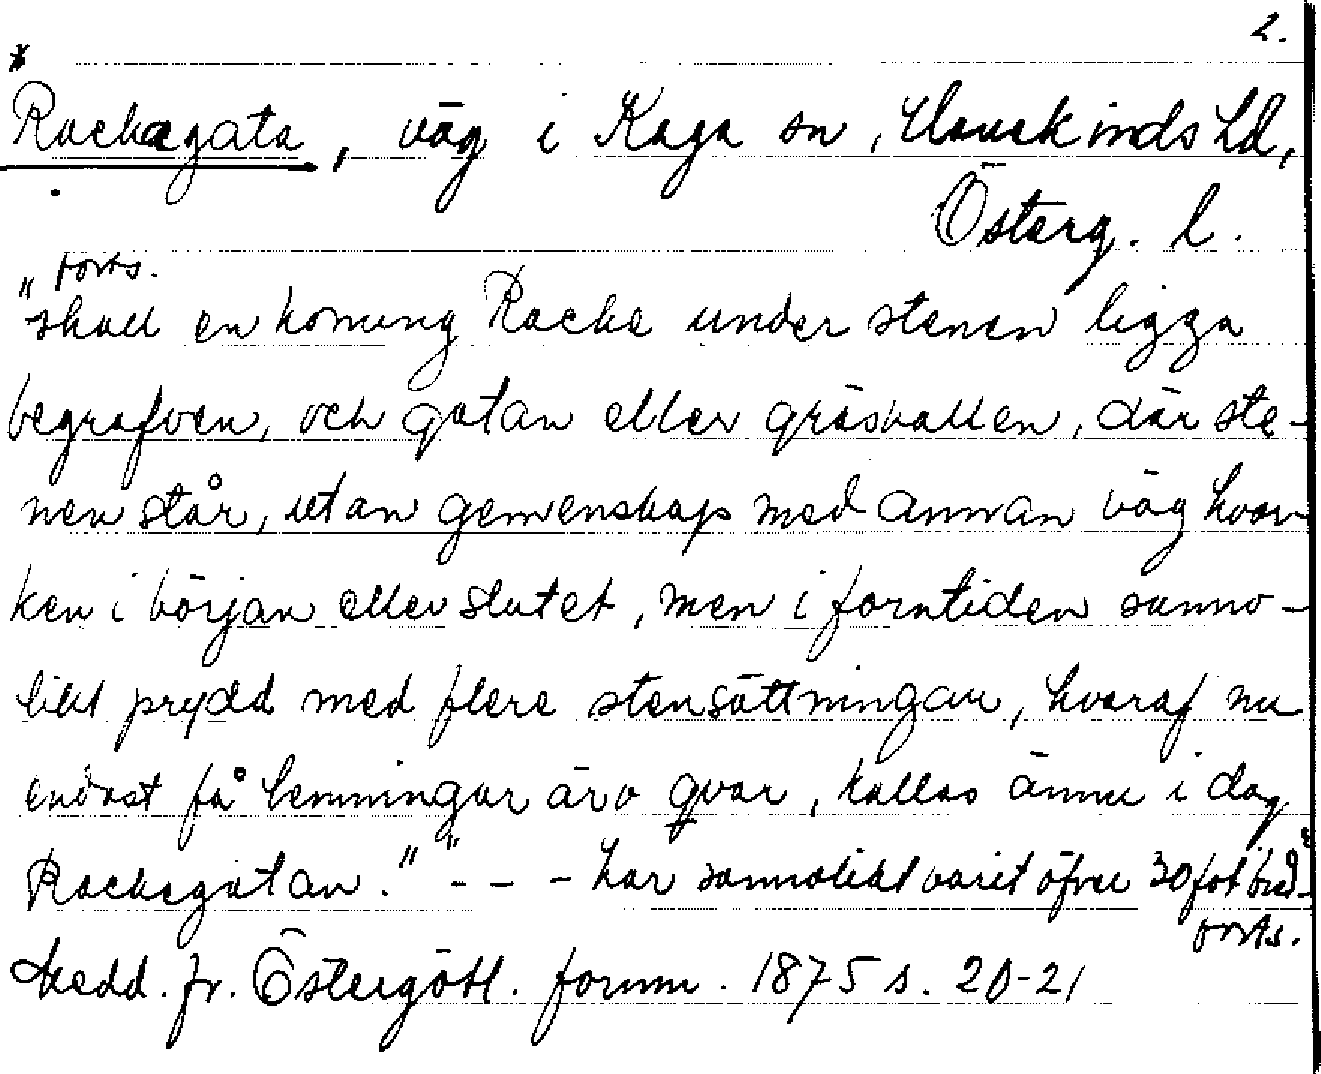 2.
*
Rackegata, väg i Kaga sn, Hanekinds hd,
Österg. l.
forts.
"skall en konung Racke under stenen ligga
begrafven, och gatan eller gräsvallen, där ste-
nen står, utan gemenskap med annan väg hvar-
ken i början eller slutet, men i forntiden sanno-
likt prydd med flere stensättningar, hvaraf nu
endast få lemningar äro qvar, kallas ännu i dag
Rackegatan." " - - - har sannolikt varit öfver 30 fot bred"
forts.
Medd. fr. Östergötl. fornm. 1875 s. 20-21